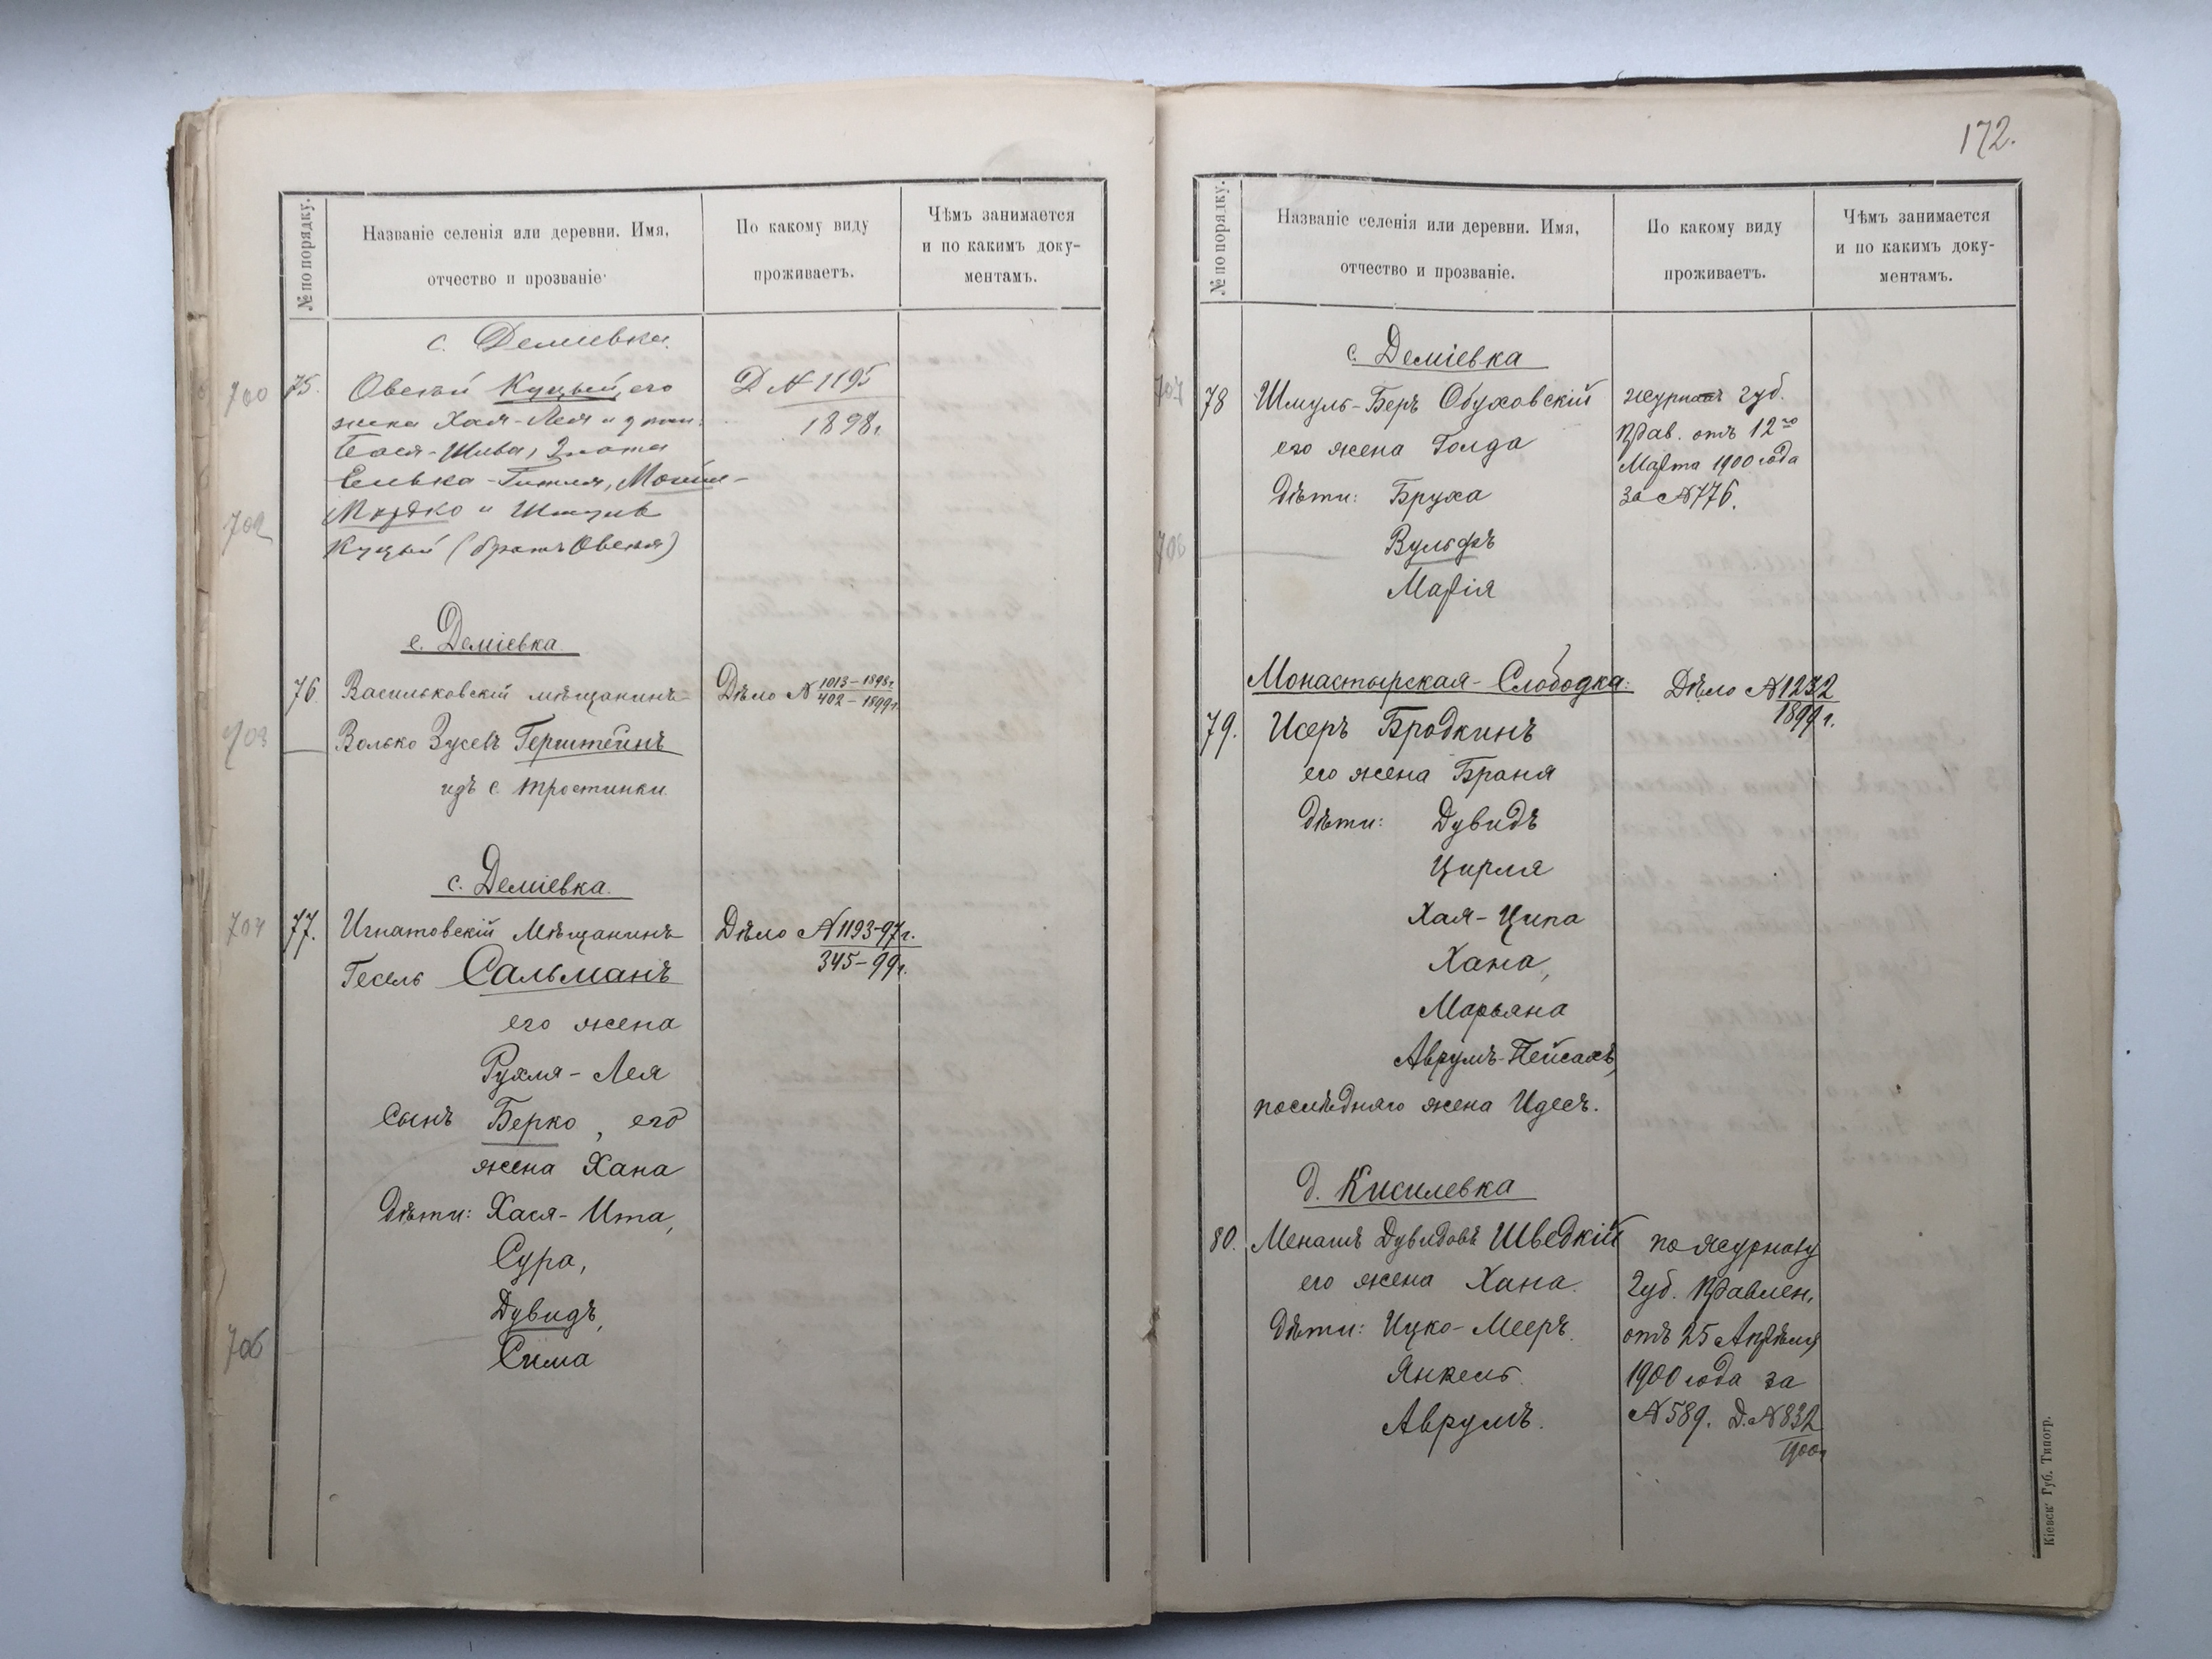 № по порядку.
Названіе селенія или деревни. Имя,
отчество и прозваніе
По какому виду
проживаетъ.
Чѣмъ занимается
и по какимъ доку-
ментамъ.
с. Деміевка.
700
75.
Овсѣй Куцый, его
жена Хая-Лея и дѣти:
Злота
Мошко-
702
Мордко и Шмуль
Куцый (братъ Овсея)
Д №1195
1898г.
с. Деміевка
76.
Васильковскій мѣщанинъ
703
Волько Зусевъ Герштейнъ
изъ с. Тростинки.
Дѣло № 1013-1898г.
402-1899г.
с. Деміевка.
704
77.
Игнатовскій Мѣщанинъ
Гесель Сальманъ
его жена
Рухля-Лея
Сынъ Берко, его
жена Хана
Дѣти: Хася-Ита,
Сура,
Дувидъ,
706
Сима
Дѣло №1193-97г.
345-99г.
172.
№ по порядку.
Названіе селенія или деревни. Имя,
отчество и прозваніе.
По какому виду
проживаетъ.
Чѣмъ занимается
и по какимъ доку-
ментамъ.
с. Деміевка
707
78
Шмуль-Беръ Обуховскій
его жена Голда
Дѣти: Бруха
Вульфъ
Марія
журналъ губ.
Прав. отъ 12го
Марта 1900 года
за №776.
Монастырская-Слободка:
79.
Исеръ Бродкинъ
его жена Браня
Дѣти: Дувидъ
Цирля
Хая-Ципа
Хана,
Марьяна
Аврумъ-Пейсахъ,
послѣдняго жена Идесъ.
Дѣло №1232
1899г.
д. Кисилевка
80.
Менашъ Дувидовъ Шведкій
его жена Хана.
Дѣти: Ицко-Мееръ.
Янкель.
Аврумъ.
по журналу
Губ. Правлен.
отъ 25 Апрѣля
1900 года за
№589. Д. №832
1900г
Кіевск. Губ. Типогр.